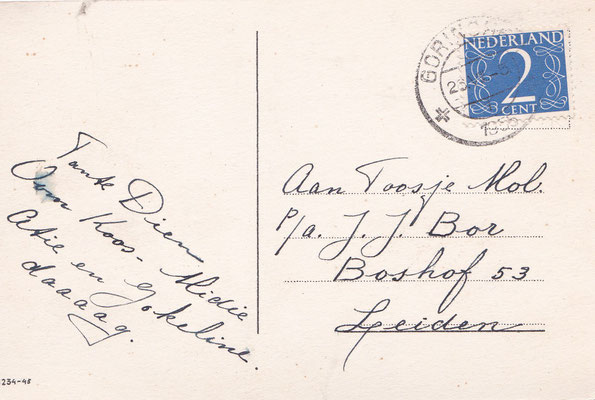 Tante Dien
Oom Koos - Midie
Atie en Jokeline.
daaaag.
GORIN
23
NEDERLAND
2
CENT
Aan Toosje Mol.
P/a. J. J. Bor
Boshof 53
Leiden
234-48